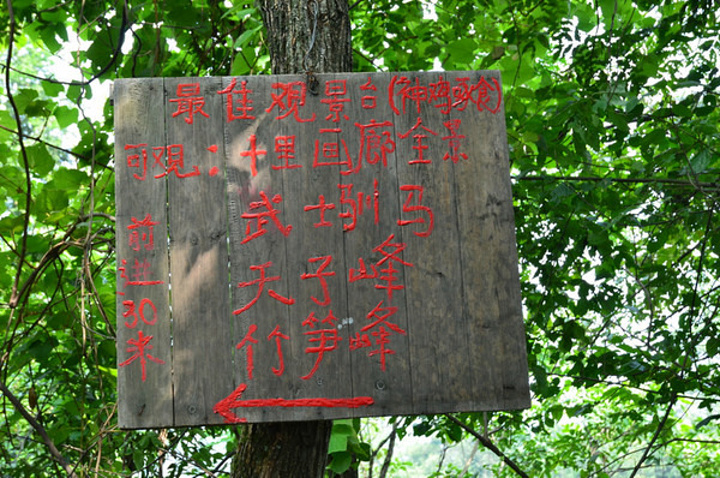 最佳观景台(神鸡啄食)
可观:十里画廊全景
武士驯马
天子峰
竹笋峰
前进30米